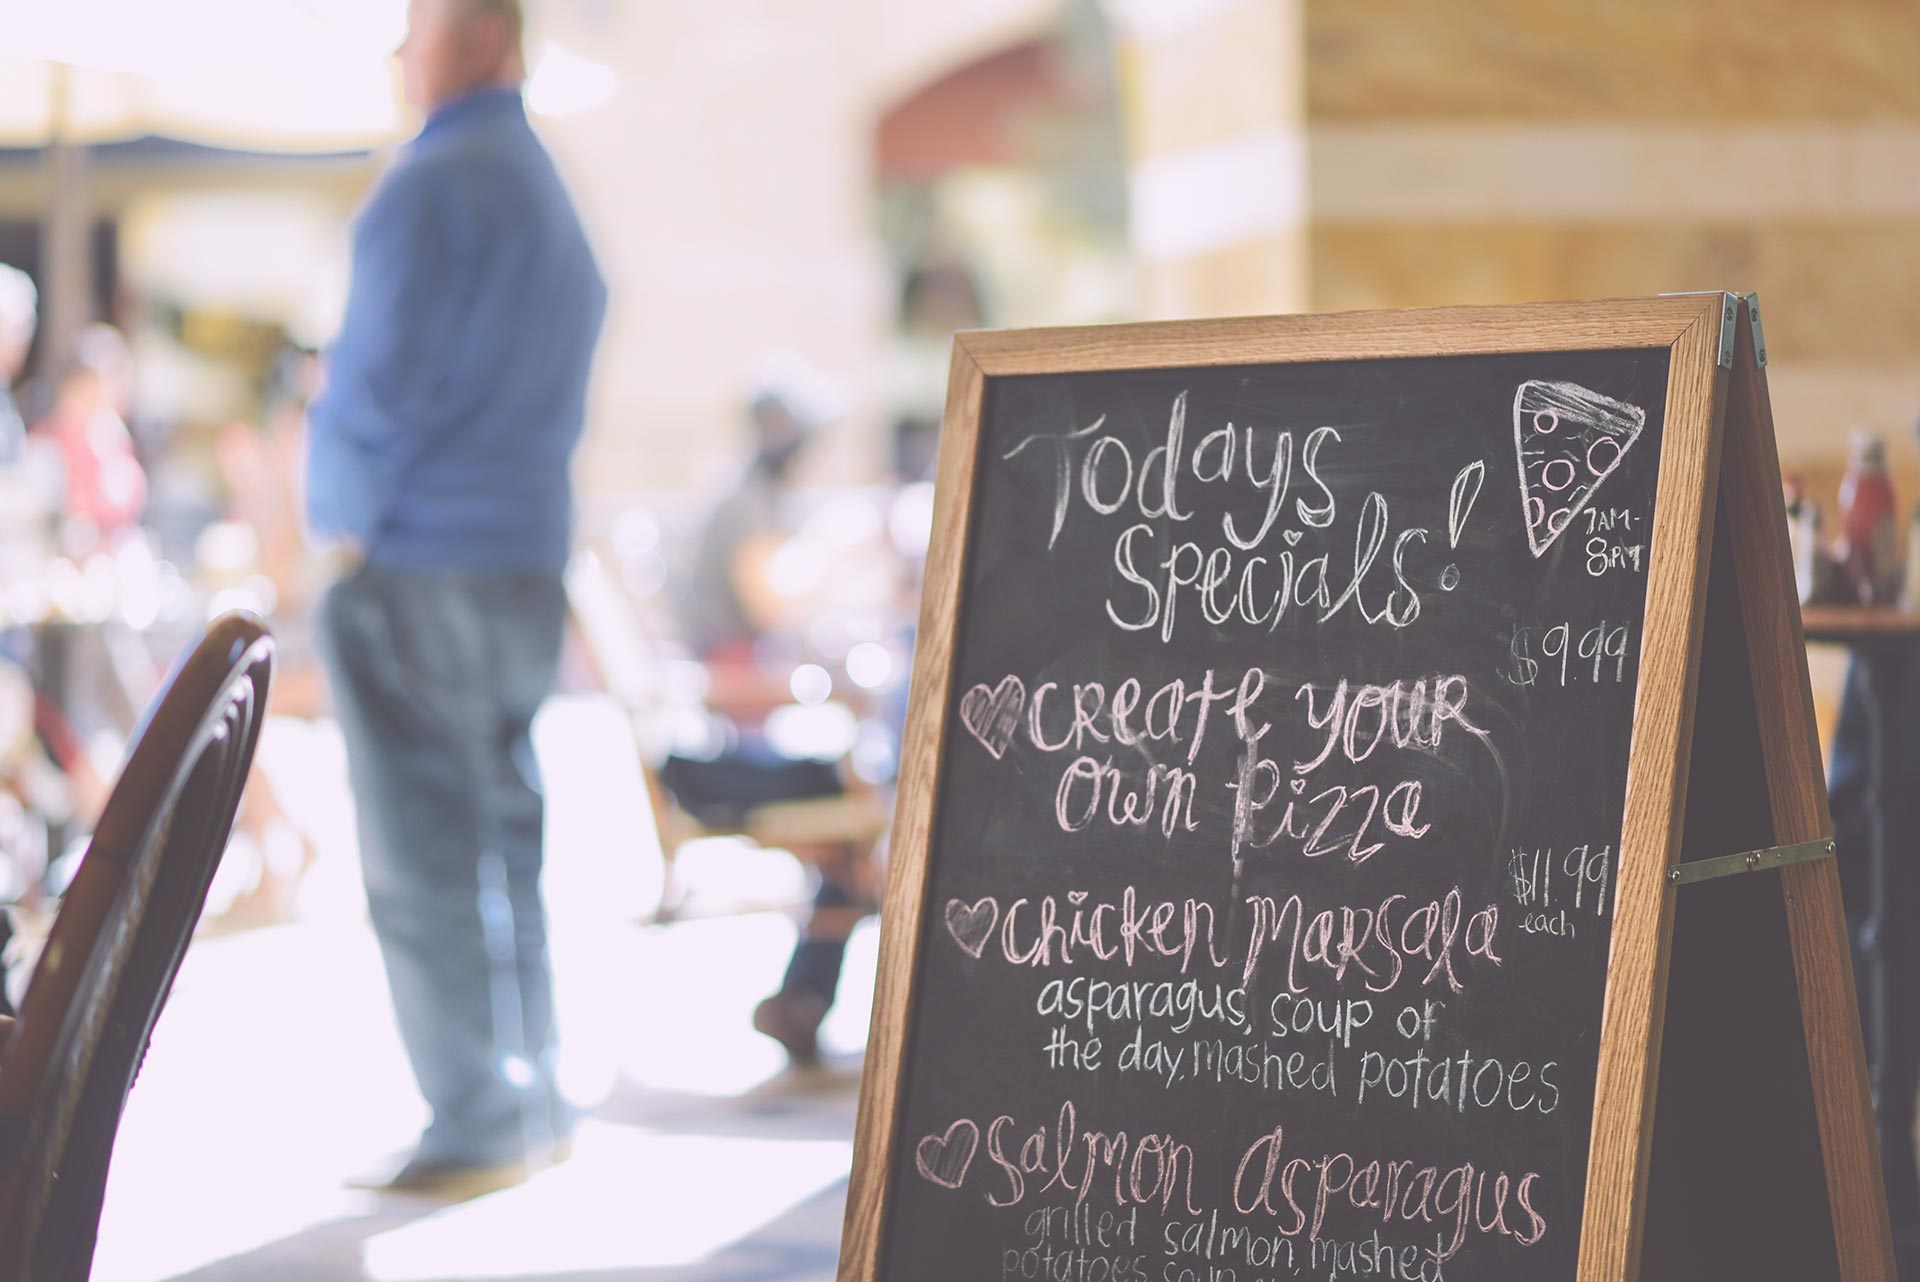 Todays
Specials!
7AM-
8PM
$9.99
Create your
own pizza
$11.99
each
Chicken Marsala
asparagus, soup of
the day, mashed potatoes
Salmon Asparagus
grilled salmon, mashed
potatoes, soup